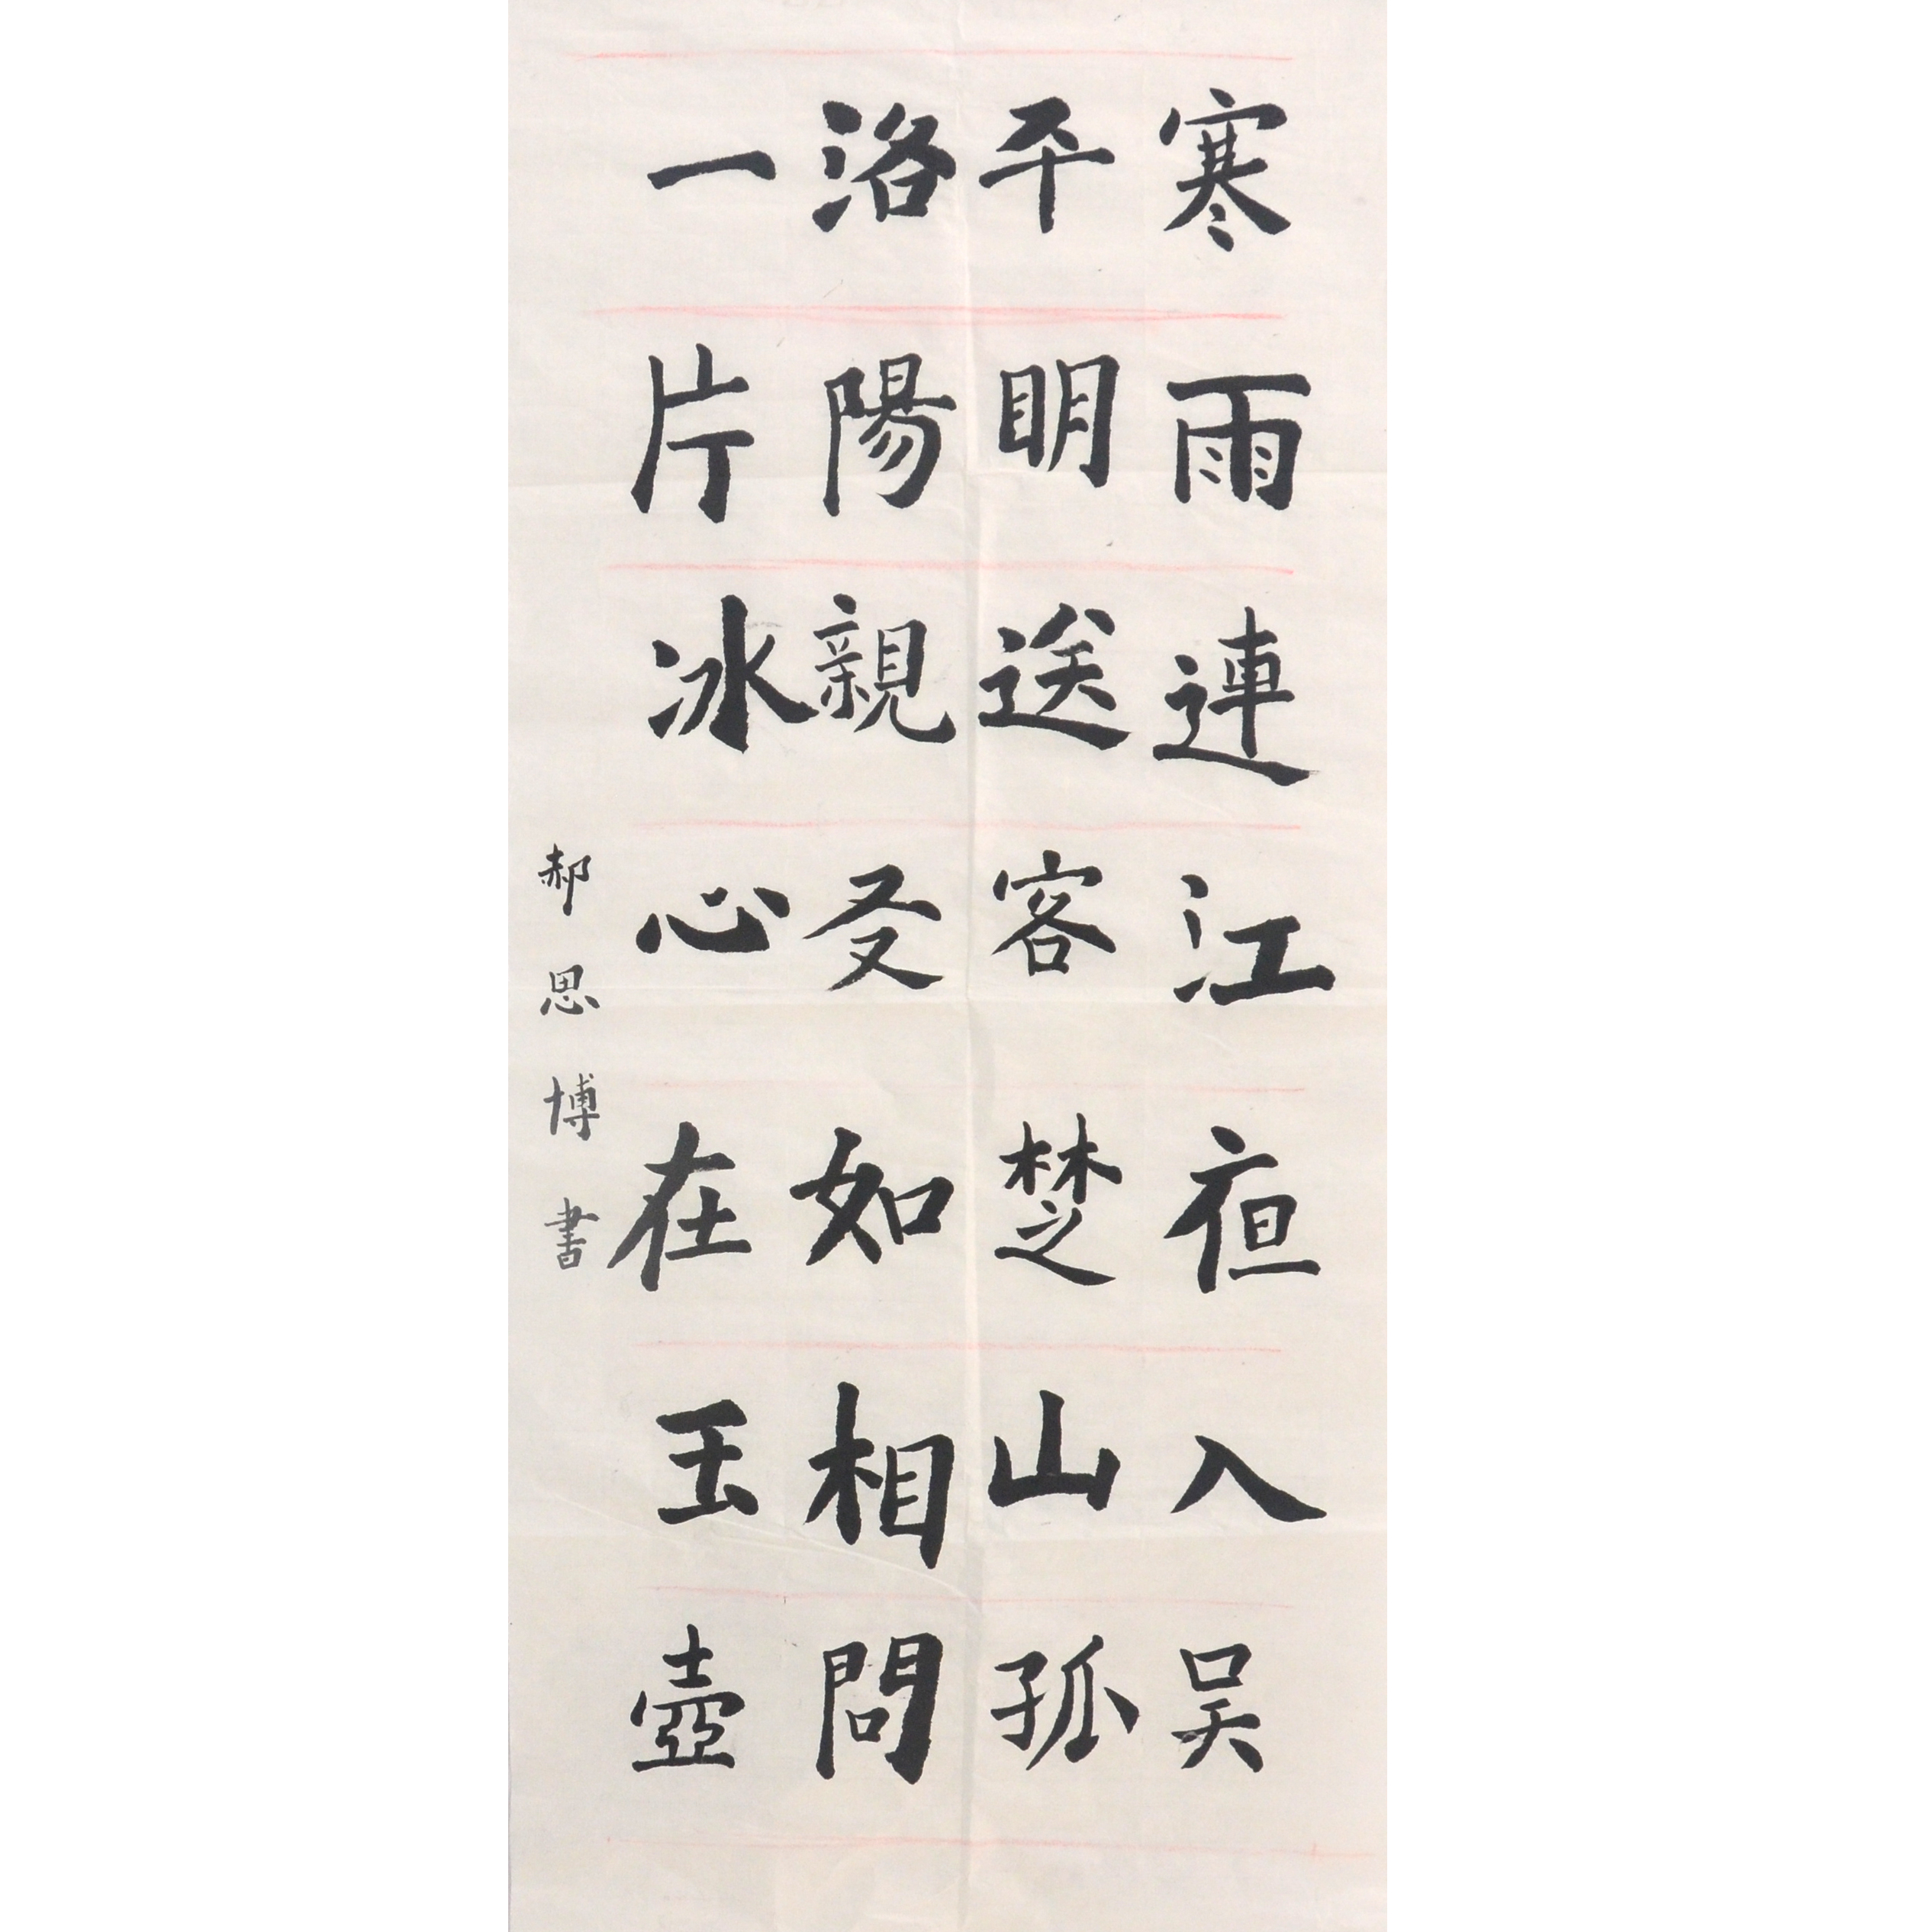 寒雨連江夜入吴
平明送客楚山孤
洛陽親友如相問
一片冰心在玉壺
郝思博書